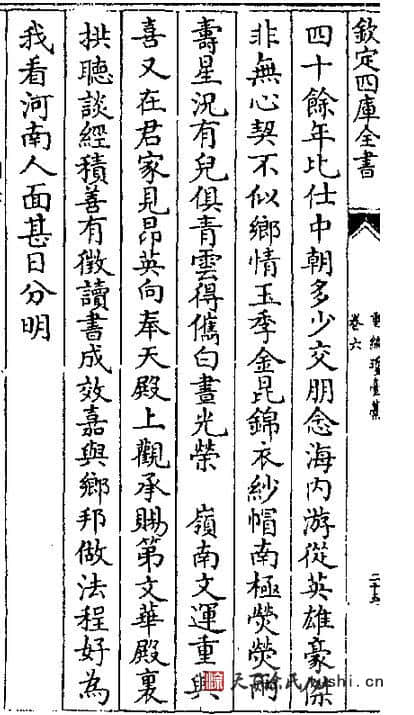 欽定四庫全書
卷六
二十五
四十餘年比仕中朝多少交朋念海内游從英雄豪傑
非無心契不似鄉情玉季金昆錦衣紗帽南極熒熒兩
壽星況有兒俱青雲得儁白晝光榮　嶺南文運重興
喜又在君家見昂英向奉天殿上觀承賜第文華殿裏
拱聽談經積善有徵讀書成效嘉與鄉邦做法程好為
我看河南人面甚日分明
徐 天下徐氏 xushi.cn